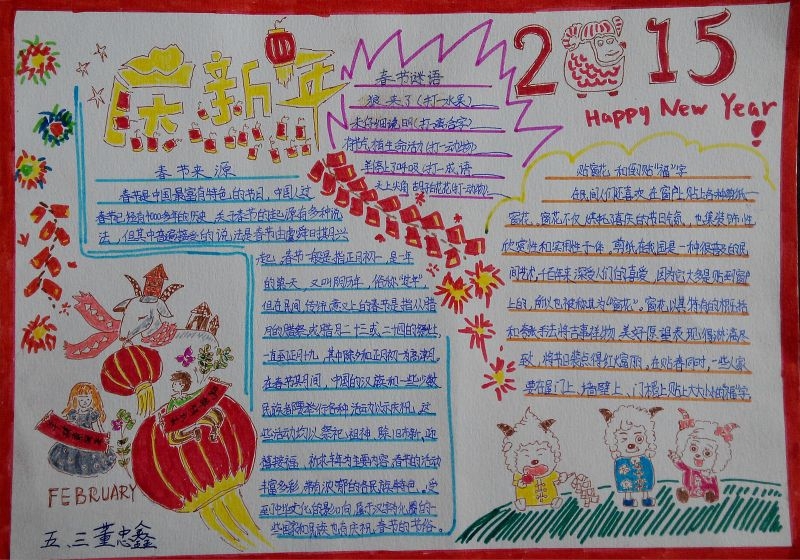 庆新年
2015
Happy New Year!
春节谜语
狼来了(打一水果)
有节气,植生命活动(打一动物)
羊停止了呼吸(打一成语
春节来源
春节是中国最富有特色的节日,中国人过
春节已经有4000多年的历史,关于春节的起源有多种说
法,但其中普遍接受的说法是春节由虞舜时期兴
起。春节一般是指正月初一,是一年
的第一天,又叫阴历年,俗称"过年"
但在民间,传统意义上的春节是指从腊
月的腊祭或腊月二十三或二十四的祭灶,
一直至正月十九,其中除夕和正月初一为高潮。
在春节期间,中国的汉族和一些少数
民族都要举行各种活动以示庆祝,这
些活动均以祭祀祖神、除旧布新、迎
禧接福、祈求丰年为主要内容。春节的活动
丰富多彩,带有浓郁的各民族特色。受
到中华文化的影响,属于汉字文化圈的一
些国家和民族也有庆祝春节的节俗。
贴窗花和倒贴"福"字
在民间人们还喜欢在窗户上贴上各种剪纸—
窗花。窗花不仅烘托了喜庆的节日气氛,也集装饰性
欣赏性和实用性于一体。剪纸在我国是一种很普及的民
间艺术,千百年来深受人们的喜爱,因为它大多是贴到窗户
上的,所以也被称其为"窗花"。窗花以其特有的概括
和夸张手法将吉事祥物、美好愿望表现得淋漓尽
致,将节日装点得红火富丽。在贴春同时,一些人家
要在屋门上、墙壁上、门楣上贴上大大小小的"福"字。
FEBRUARY
五、三董忠鑫